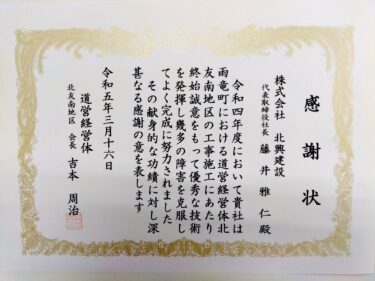 感謝状
株式会社 北興建設
代表取締役社長 藤井雅仁殿
令和四年度において貴社は
雨竜町における道営経営体北
友南地区の工事施工にあたり
終始誠意をもって優秀な技術
を発揮し幾多の障害を克服し
てよく完成に努力されました
その献身的な功績に対し深
甚なる感謝の意を表します
令和五年三月十六日
道営経営体
北友南地区 会長 吉本周治